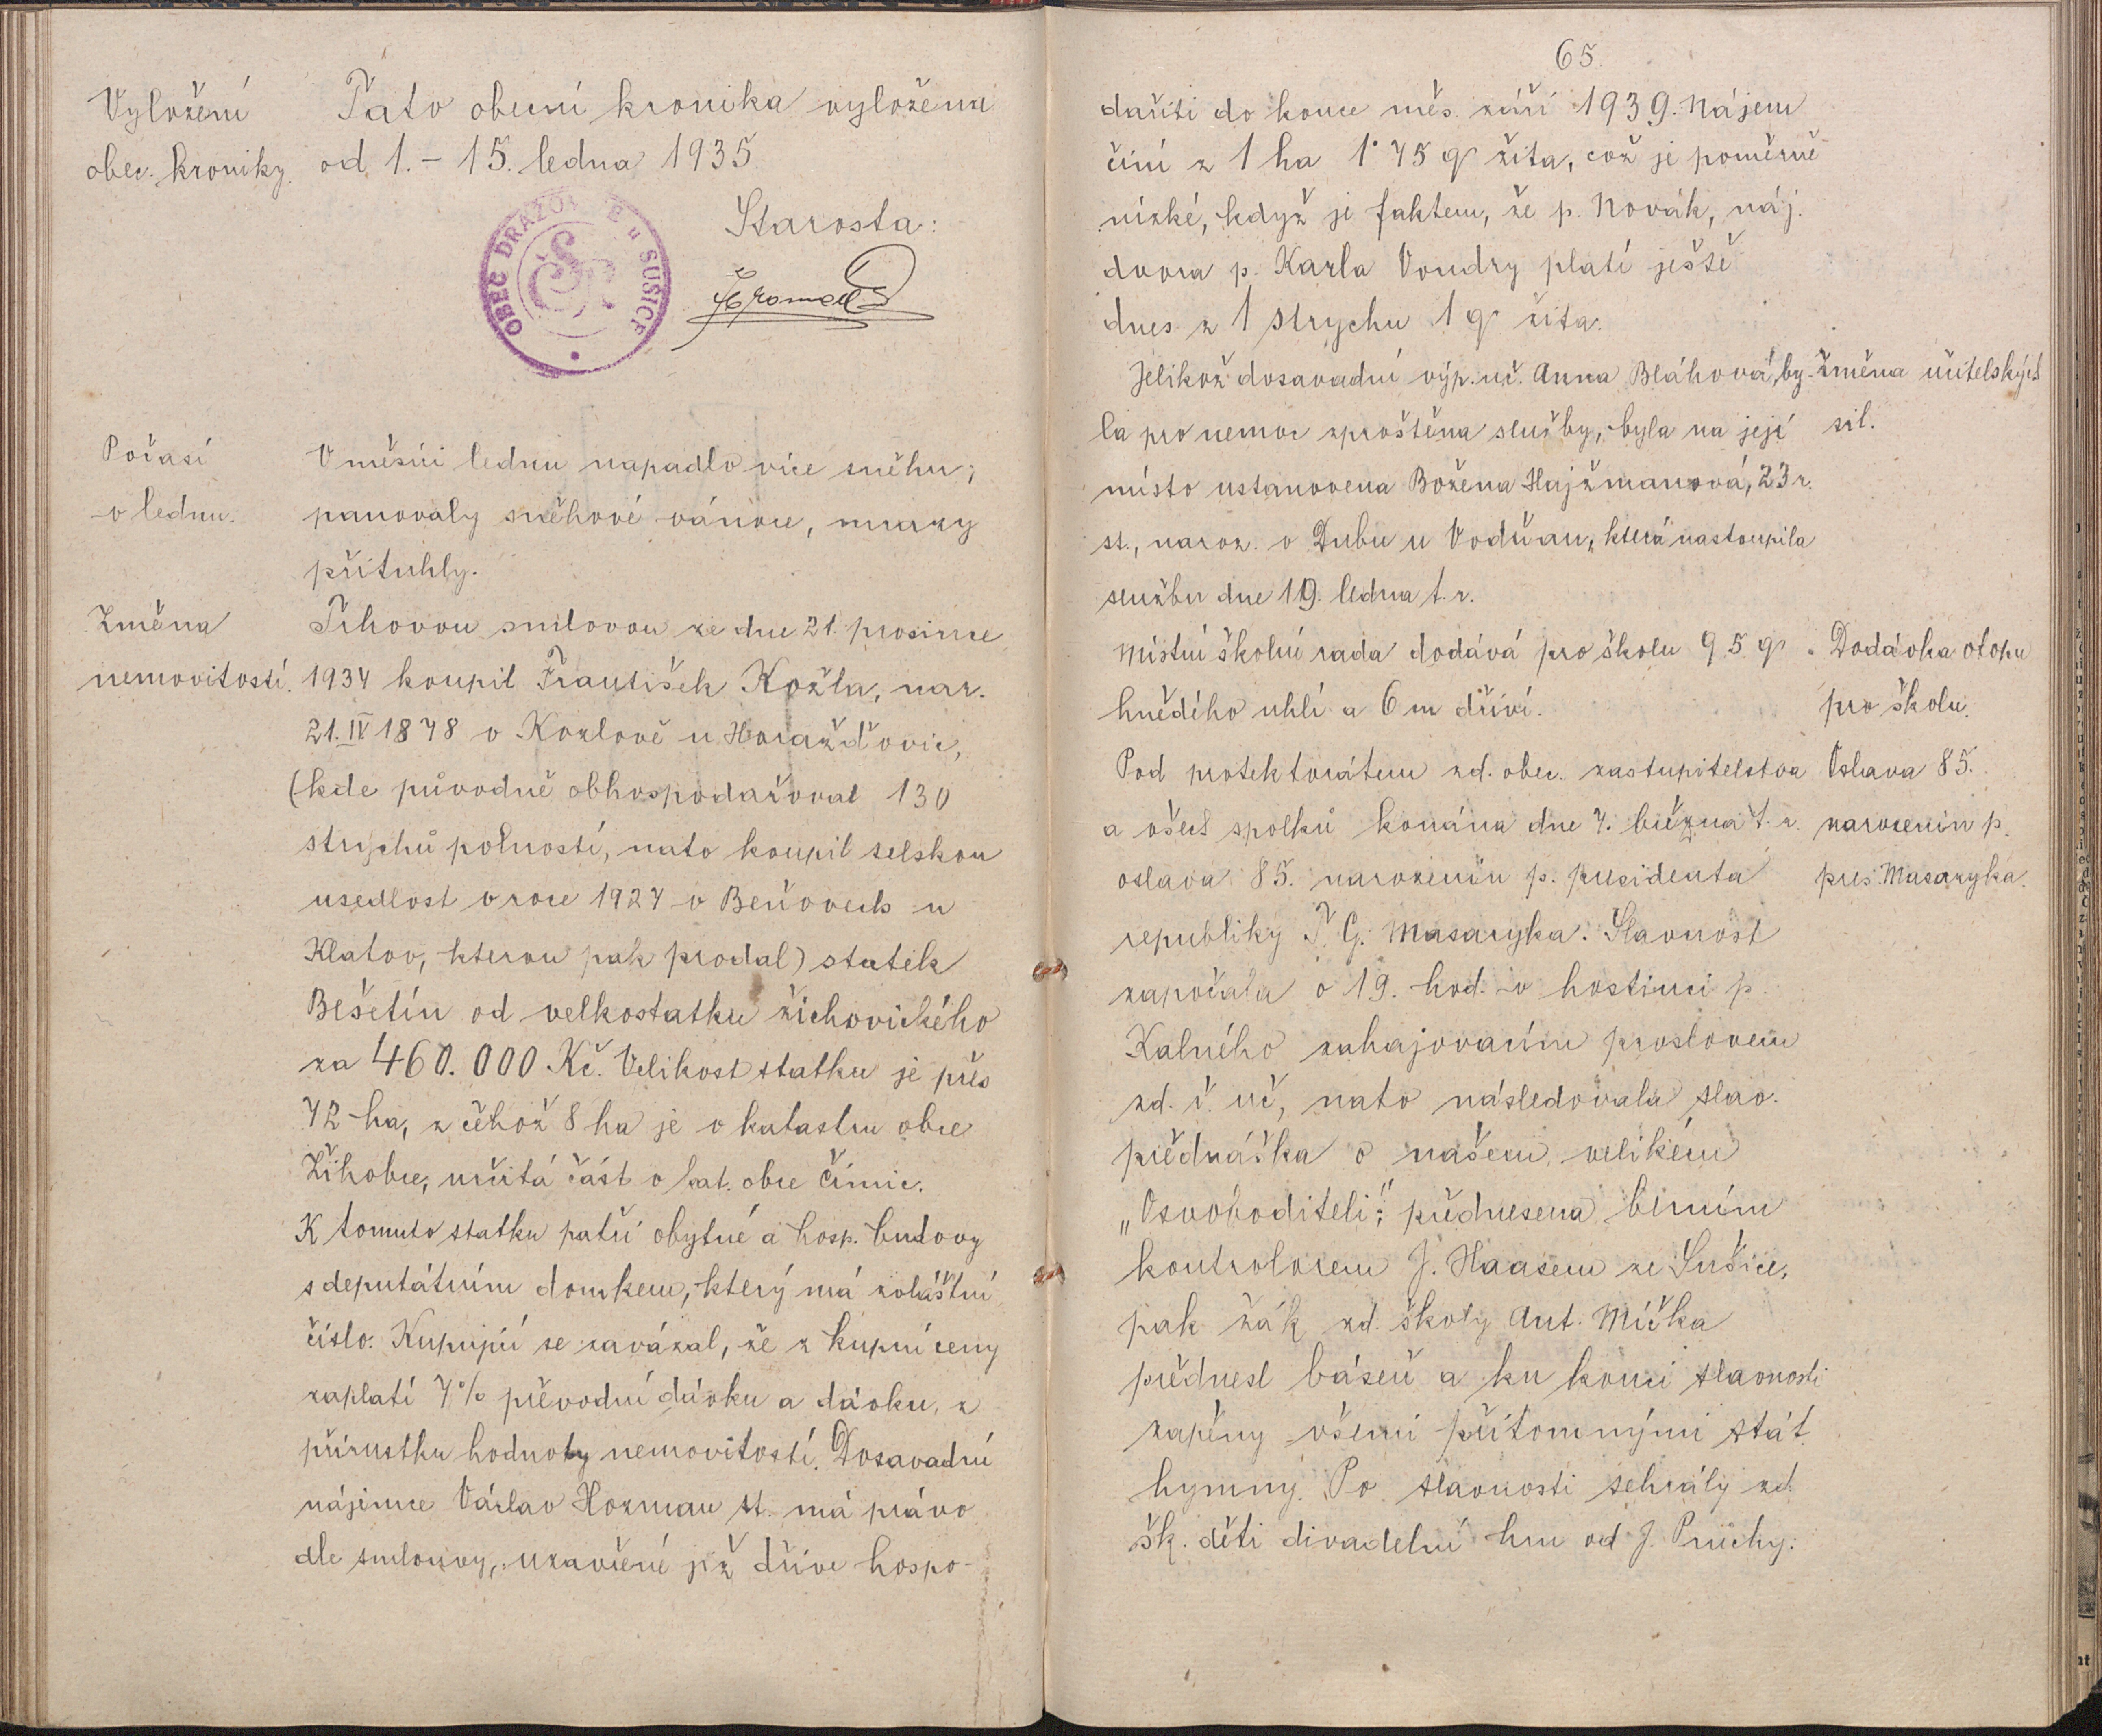 Vyložení
obec. kroniky.
Tato obecní kronika vyložena
od 1. – 15. ledna 1935
Starosta:
OBEC DRAŽOVICE u SUŠICE
Počasí
v lednu.
V měsíci lednu napadlo více sněhu;
panovaly sněhové vánice, mrazy
přituhly.
Změna
nemovitostí.
Trhovou smlovou ze dne 21. prosince
1934 koupil František Kožla, nar.
21. IV 1878 v Kozlově u Horažďovic,
(kde původně obhospodařoval 130
strychů polností, nato koupil selskou
usedlost v roce 1927 v Beňovech u
Klatov, kterou pak prodal) statek
Bešetín od velkostatku žichovického
za 460.000 Kč. Velikost statku je přes
72 ha, z čehož 8 ha je v katastru obce
Žihobce, určitá část v kat. obce Čímic.
K tomuto statku patří obytné a hosp. budovy
s deputátním domkem, který má zvláštní
číslo. Kupující se zavázal, že z kupní ceny
zaplatí 7% převodní dávku a dávku z
přírustku hodnoty nemovitostí. Dosavadní
nájemce Václav Hozman st. má právo
dle smlouvy, uzavřené již dříve hospo-
65
dařiti do konce měs. září 1939. Nájem
činí z 1 ha 1·75 q žita, což je poměrně
nízké, když je faktem, že p. Novák, náj.
dvora p. Karla Voudry platí ještě
dnes z 1 strychu 1 q žita.
Jelikož dosavadní výp. uč. Anna Bláhová by-
la pro nemoc zproštěna služby, byla na její
místo ustanovena Božena Hajžmanová, 23 r.
st., naroz. v Dubu u Vodňan, která nastoupila
službu dne 19. ledna t. r.
Změna učitelských
sil.
Místní školní rada dodává pro školu 95 q
hnědého uhlí a 6 m dříví.
Dodávka otopu
pro školu.
Pod protektorátem zd. obec. zastupitelstva
a všech spolků konána dne 7. března t. r.
oslava 85. narozenin p. presidenta
republiky T. G. Masaryka. Slavnost
započala o 19. hod. v hostinci p.
Kalného zahajovacím proslovem
zd. ř. uč, nato následovala slav.
přednáška o našem velikém
„Osvoboditeli", přednesena berním
kontrolorem J. Haasem ze Sušice,
pak žák zd. školy Ant. Míčka
přednesl báseň a ku konci slavnosti
zapěny všemi přítomnými stát.
hymny. Po slavnosti sehrály zd.
šk. děti divadelní hru od J. Průchy:
Oslava 85.
narozenin p.
pres. Masaryka.